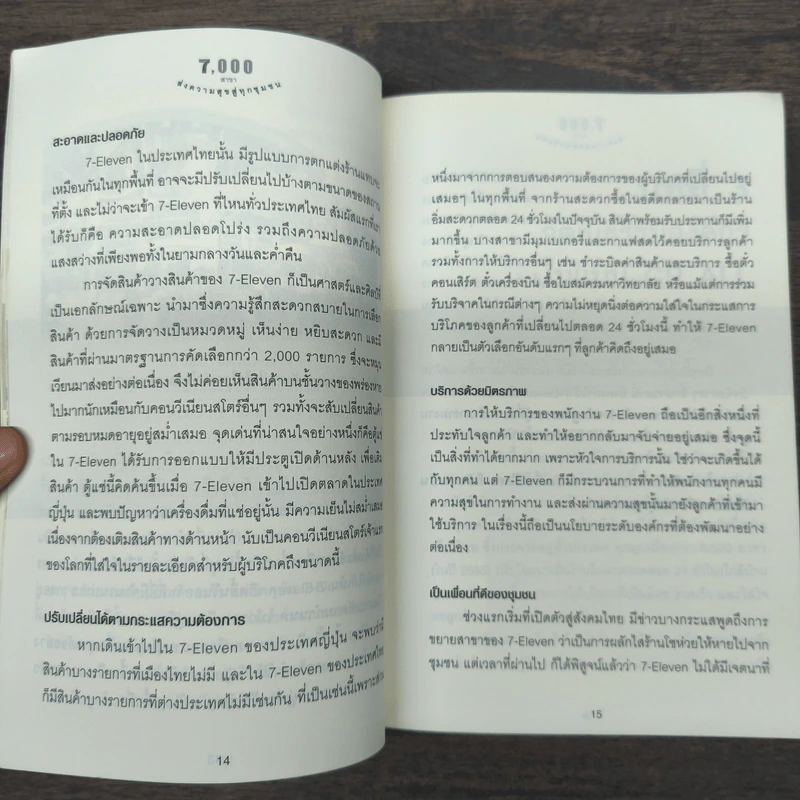 7,000
สาขา
ส่งความสุขสู่ทุกชุมชน
สะอาดและปลอดภัย
7-Eleven ในประเทศไทยนั้น มีรูปแบบการตกแต่งร้านแทบจะ
เหมือนกันในทุกพื้นที่ อาจจะมีปรับเปลี่ยนไปบ้างตามขนาดของสถาน
ที่ตั้ง และไม่ว่าจะเข้า 7-Eleven ที่ไหนทั่วประเทศไทย สัมผัสแรกที่
ได้รับก็คือ ความสะอาดปลอดโปร่ง รวมถึงความปลอดภัยด้วย
แสงสว่างที่เพียงพอทั้งในยามกลางวันและค่ำคืน
การจัดสินค้าวางสินค้าของ 7-Eleven ก็เป็นศาสตร์และศิลป์ที่
เป็นเอกลักษณ์เฉพาะ นำมาซึ่งความรู้สึกสะดวกสบายในการเลือก
สินค้า ด้วยการจัดวางเป็นหมวดหมู่ เห็นง่าย หยิบสะดวก และมี
สินค้าที่ผ่านมาตรฐานการคัดเลือกกว่า 2,000 รายการ ซึ่งจะหมุน
เวียนมาส่งอย่างต่อเนื่อง จึงไม่ค่อยเห็นสินค้าบนชั้นวางของพร่องหาย
ไปมากนักเหมือนกับคอนวีเนียนสโตร์อื่นๆ รวมทั้งจะสับเปลี่ยนสินค้า
ตามรอบหมดอายุอยู่สม่ำเสมอ จุดเด่นที่น่าสนใจอย่างหนึ่งก็คือตู้แช่
ใน 7-Eleven ได้รับการออกแบบให้มีประตูเปิดด้านหลัง เพื่อเติม
สินค้า ตู้แช่นี้คิดค้นขึ้นเมื่อ 7-Eleven เข้าไปเปิดตลาดในประเทศ
ญี่ปุ่น และพบปัญหาว่าเครื่องดื่มที่แช่อยู่นั้น มีความเย็นไม่สม่ำเสมอ
เนื่องจากต้องเติมสินค้าทางด้านหน้า นับเป็นคอนวีเนียนสโตร์เจ้าแรก
ของโลกที่ใส่ใจในรายละเอียดสำหรับผู้บริโภคถึงขนาดนี้
ปรับเปลี่ยนได้ตามกระแสความต้องการ
หากเดินเข้าไปใน 7-Eleven ของประเทศญี่ปุ่น จะพบว่ามี
สินค้าบางรายการที่เมืองไทยไม่มี และใน 7-Eleven ของประเทศไทย
ก็มีสินค้าบางรายการที่ต่างประเทศไม่มีเช่นกัน ที่เป็นเช่นนี้เพราะส่วน
14
7,000
หนึ่งมาจากการตอบสนองความต้องการของผู้บริโภคที่เปลี่ยนไปอยู่
เสมอๆ ในทุกพื้นที่ จากร้านสะดวกซื้อในอดีตกลายมาเป็นร้าน
อิ่มสะดวกตลอด 24 ชั่วโมงในปัจจุบัน สินค้าพร้อมรับประทานก็มีเพิ่ม
มากขึ้น บางสาขามีมุมเบเกอรี่และกาแฟสดไว้คอยบริการลูกค้า
รวมทั้งการให้บริการอื่นๆ เช่น ชำระบิลค่าสินค้าและบริการ ซื้อตั๋ว
คอนเสิร์ต ตั๋วเครื่องบิน ซื้อใบสมัครมหาวิทยาลัย หรือแม้แต่การร่วม
รับบริจาคในกรณีต่างๆ ความไม่หยุดนิ่งต่อความใส่ใจในกระแสการ
บริโภคของลูกค้าที่เปลี่ยนไปตลอด 24 ชั่วโมงนี้ ทำให้ 7-Eleven
กลายเป็นตัวเลือกอันดับแรกๆ ที่ลูกค้าคิดถึงอยู่เสมอ
บริการด้วยมิตรภาพ
การให้บริการของพนักงาน 7-Eleven ถือเป็นอีกสิ่งหนึ่งที่
ประทับใจลูกค้า และทำให้อยากกลับมาจับจ่ายอยู่เสมอ ซึ่งจุดนี้
เป็นสิ่งที่ทำได้ยากมาก เพราะหัวใจการบริการนั้น ใช่ว่าจะเกิดขึ้นได้
กับทุกคน แต่ 7-Eleven ก็มีกระบวนการที่ทำให้พนักงานทุกคนมี
ความสุขในการทำงาน และส่งผ่านความสุขนั้นมายังลูกค้าที่เข้ามา
ใช้บริการ ในเรื่องนี้ถือเป็นนโยบายระดับองค์กรที่ต้องพัฒนาอย่าง
ต่อเนื่อง
เป็นเพื่อนที่ดีของชุมชน
ช่วงแรกเริ่มที่เปิดตัวสู่สังคมไทย มีข่าวบางกระแสพูดถึงการ
ขยายสาขาของ 7-Eleven ว่าเป็นการผลักไสร้านโชห่วยให้หายไปจาก
ชุมชน แต่เวลาที่ผ่านไป ก็ได้พิสูจน์แล้วว่า 7-Eleven ไม่ได้มีเจตนาที่
15